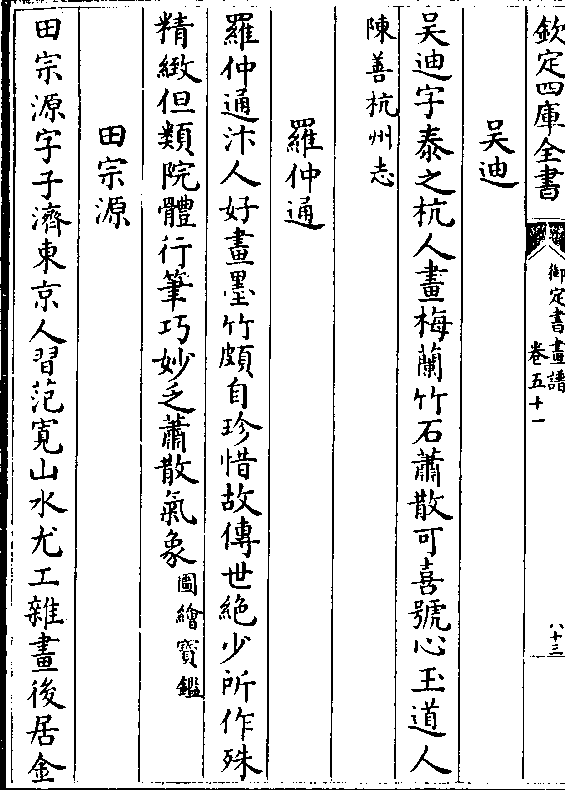 欽定四庫全書
御定書畫譜
卷五十一
八十三
吳迪
吳迪字泰之杭人畫梅蘭竹石蕭散可喜號心玉道人
陳善杭州志
羅仲通
羅仲通汴人好畫墨竹頗自珍惜故傳世絶少所作殊
精緻但類院體行筆巧妙乏蕭散氣象圖繪寶鑑
田宗源
田宗源字子濟東京人習范寛山水尤工雜畫後居金